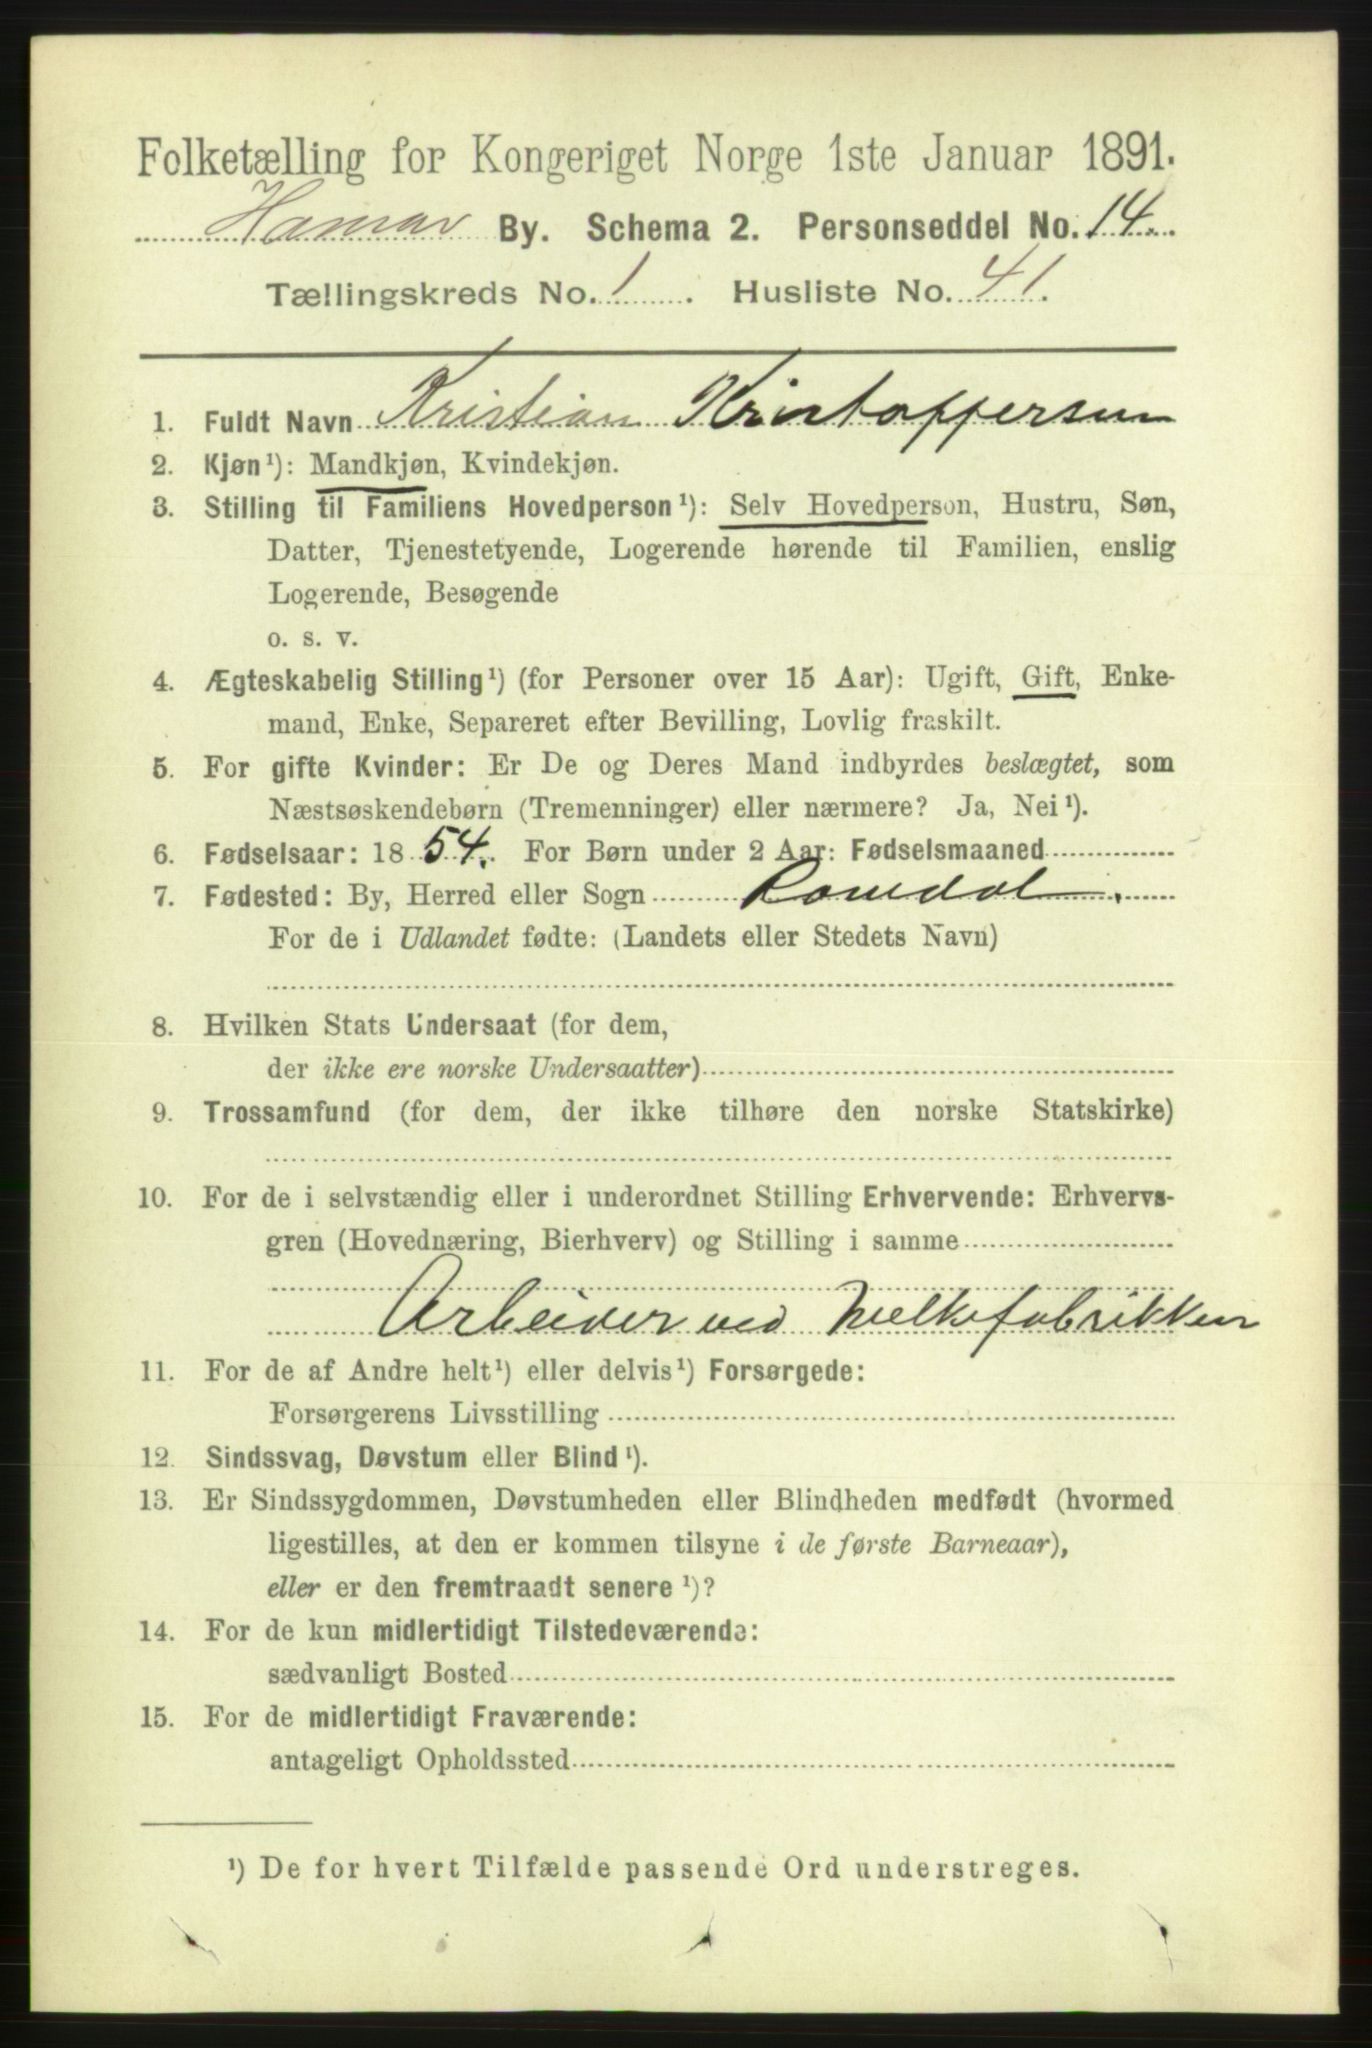 Folketælling for Kongeriget Norge 1ste Januar 1891.
Hamar By. Schema 2. Personseddel No. 14.
Tællingskreds No. 1. Husliste No. 41.
1. Fuldt Navn Kristian Kristoffersen
2. Kjøn¹): Mandkjøn, Kvindekjøn.
3. Stilling til Familiens Hovedperson¹): Selv Hovedperson, Hustru, Søn,
Datter, Tjenestetyende, Logerende hørende til Familien, enslig
Logerende, Besøgende
o. s. v.
4. Ægteskabelig Stilling¹) (for Personer over 15 Aar): Ugift, Gift, Enke-
mand, Enke, Separeret efter Bevilling, Lovlig fraskilt.
5. For gifte Kvinder: Er De og Deres Mand indbyrdes beslægtet, som
Næstsøskendebørn (Tremenninger) eller nærmere? Ja, Nei¹).
6. Fødselsaar: 1854. For Børn under 2 Aar: Fødselsmaaned
7. Fødested: By, Herred eller Sogn Romedal.
For de i Udlandet fødte: (Landets eller Stedets Navn)
8. Hvilken Stats Undersaat (for dem,
der ikke ere norske Undersaatter)
9. Trossamfund (for dem, der ikke tilhøre den norske Statskirke)
10. For de i selvstændig eller i underordnet Stilling Erhvervende: Erhvervs-
gren (Hovednæring, Bierhverv) og Stilling i samme
Arbeider ved Melkefabrikken
11. For de af Andre helt¹) eller delvis¹) Forsørgede:
Forsørgerens Livsstilling
12. Sindssvag, Døvstum eller Blind¹).
13. Er Sindssygdommen, Døvstumheden eller Blindheden medfødt (hvormed
ligestilles, at den er kommen tilsyne i de første Barneaar),
eller er den fremtraadt senere¹)?
14. For de kun midlertidigt Tilstedeværende:
sædvanligt Bosted
15. For de midlertidigt Fraværende:
antageligt Opholdssted
¹) De for hvert Tilfælde passende Ord understreges.